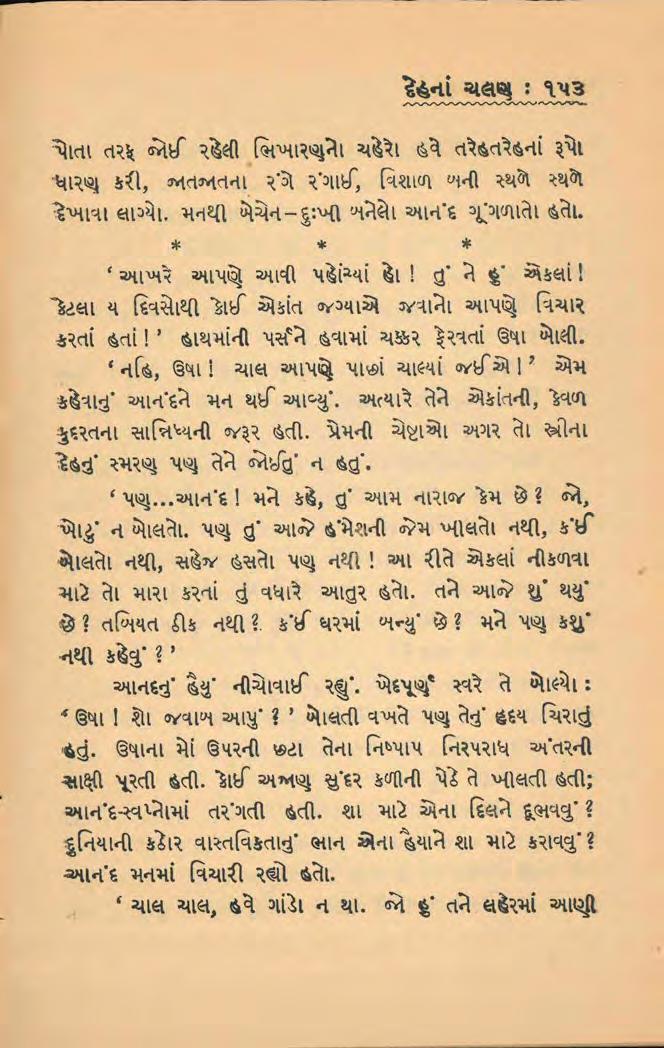 દેહનાં ચલણ : ૧૫૩
પોતા તરફ જોઈ રહેલી ભિખારણનો ચહેરો હવે તરેહતરેહનાં રૂપો
ધારણ કરી, જાતજાતના રંગે રંગાઈ, વિશાળ બની સ્થળે સ્થળે
દેખાવા લાગ્યો. મનથી બેચેન–દુઃખી બનેલો આનંદ ગૂંગળાતો હતો.
* * *
‘ આખરે આપણે આવી પહોંચ્યાં હો ! તું ને હું એકલાં !
કેટલા ય દિવસોથી કોઈ એકાંત જગ્યાએ જવાનો આપણે વિચાર
કરતાં હતાં ! ’ હાથમાંની પર્સને હવામાં ચક્કર ફેરવતાં ઉષા બોલી.
‘ નહિ, ઉષા ! ચાલ આપણે પાછાં ચાલ્યાં જઈએ ! ’ એમ
કહેવાનું આનંદને મન થઈ આવ્યું. અત્યારે તેને એકાંતની, કેવળ
કુદરતના સાન્નિધ્યની જરૂર હતી. પ્રેમની ચેષ્ટાઓ અગર તો સ્ત્રીના
દેહનું સ્મરણ પણ તેને જોઈતું ન હતું.
‘ પણ...આનંદ ! મને કહે, તું આમ નારાજ કેમ છે ? જો,
ખોટું ન બોલતો. પણ તું આજે હંમેશની જેમ ખીલતો નથી, કંઈ
બોલતો નથી, સહેજ હસતો પણ નથી ! આ રીતે એકલાં નીકળવા
માટે તો મારા કરતાં તું વધારે આતુર હતો. તને આજે શું થયું
છે ? તબિયત ઠીક નથી ? કંઈ ઘરમાં બન્યું છે ? મને પણ કશું
નથી કહેવું ? ’
આનદનું હૈયું નીચોવાઈ રહ્યું. ખેદપૂર્ણ સ્વરે તે બોલ્યો :
‘ ઉષા ! શો જવાબ આપું ? ’ બોલતી વખતે પણ તેનું હૃદય ચિરાતું
હતું. ઉષાના મોં ઉપરની છટા તેના નિષ્પાપ નિરપરાધ અંતરની
સાક્ષી પૂરતી હતી. કોઈ અજાણ સુંદર કળીની પેઠે તે ખીલતી હતી;
આનંદ-સ્વપ્નોમાં તરંગતી હતી. શા માટે એના દિલને દૂભવવું ?
દુનિયાની કઠોર વાસ્તવિકતાનું ભાન એના હૈયાને શા માટે કરાવવું ?
આનંદ મનમાં વિચારી રહ્યો હતો.
‘ ચાલ ચાલ, હવે ગાંડો ન થા. જો હું તને લહેરમાં આણી